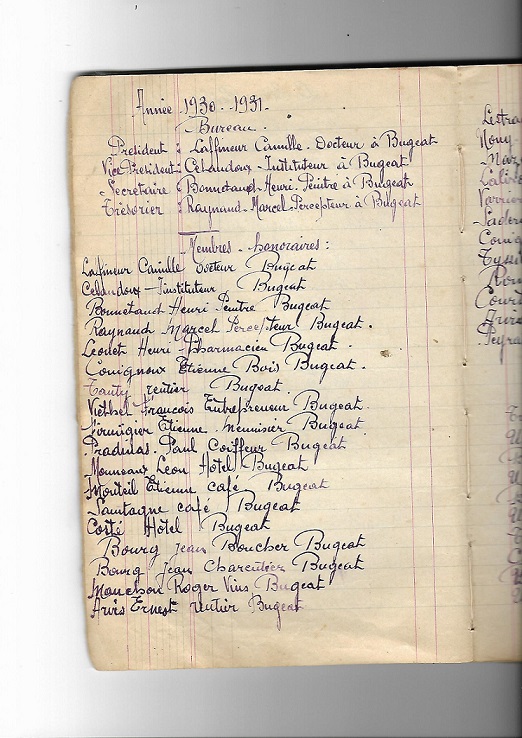 Année 1930-1931.
Bureau.
Président : Laffineur Camille. Docteur à Bugeat
Vice Président : Celaudoux - Instituteur à Bugeat
Secrétaire : Bonnetaud - Henri. Peintre à Bugeat
Trésorier : Raynaud - Marcel. Percepteur à Bugeat
Membres - honoraires :
Laffineur Camille Docteur Bugeat
Celaudoux - Instituteur Bugeat
Bonnetaud Henri Peintre Bugeat
Raynaud Marcel Percepteur Bugeat.
Leonet Henri - Pharmacien Bugeat.
Couignoux Etienne Bois Bugeat.
Tauty rentier Bugeat
François Entrepreneur Bugeat.
Etienne menuisier Bugeat.
Pradelas. Paul Coiffeur Bugeat
Monneaux Léon Hotel Bugeat
Monteil Etienne café Bugeat
Saintagne café Bugeat
Costé Hotel Bugeat
Bourg Jean Boucher Bugeat
Bourg Jean Charcutier Bugeat
Manchon Roger Vins Bugeat
Arvis Ernest rentier Bugeat